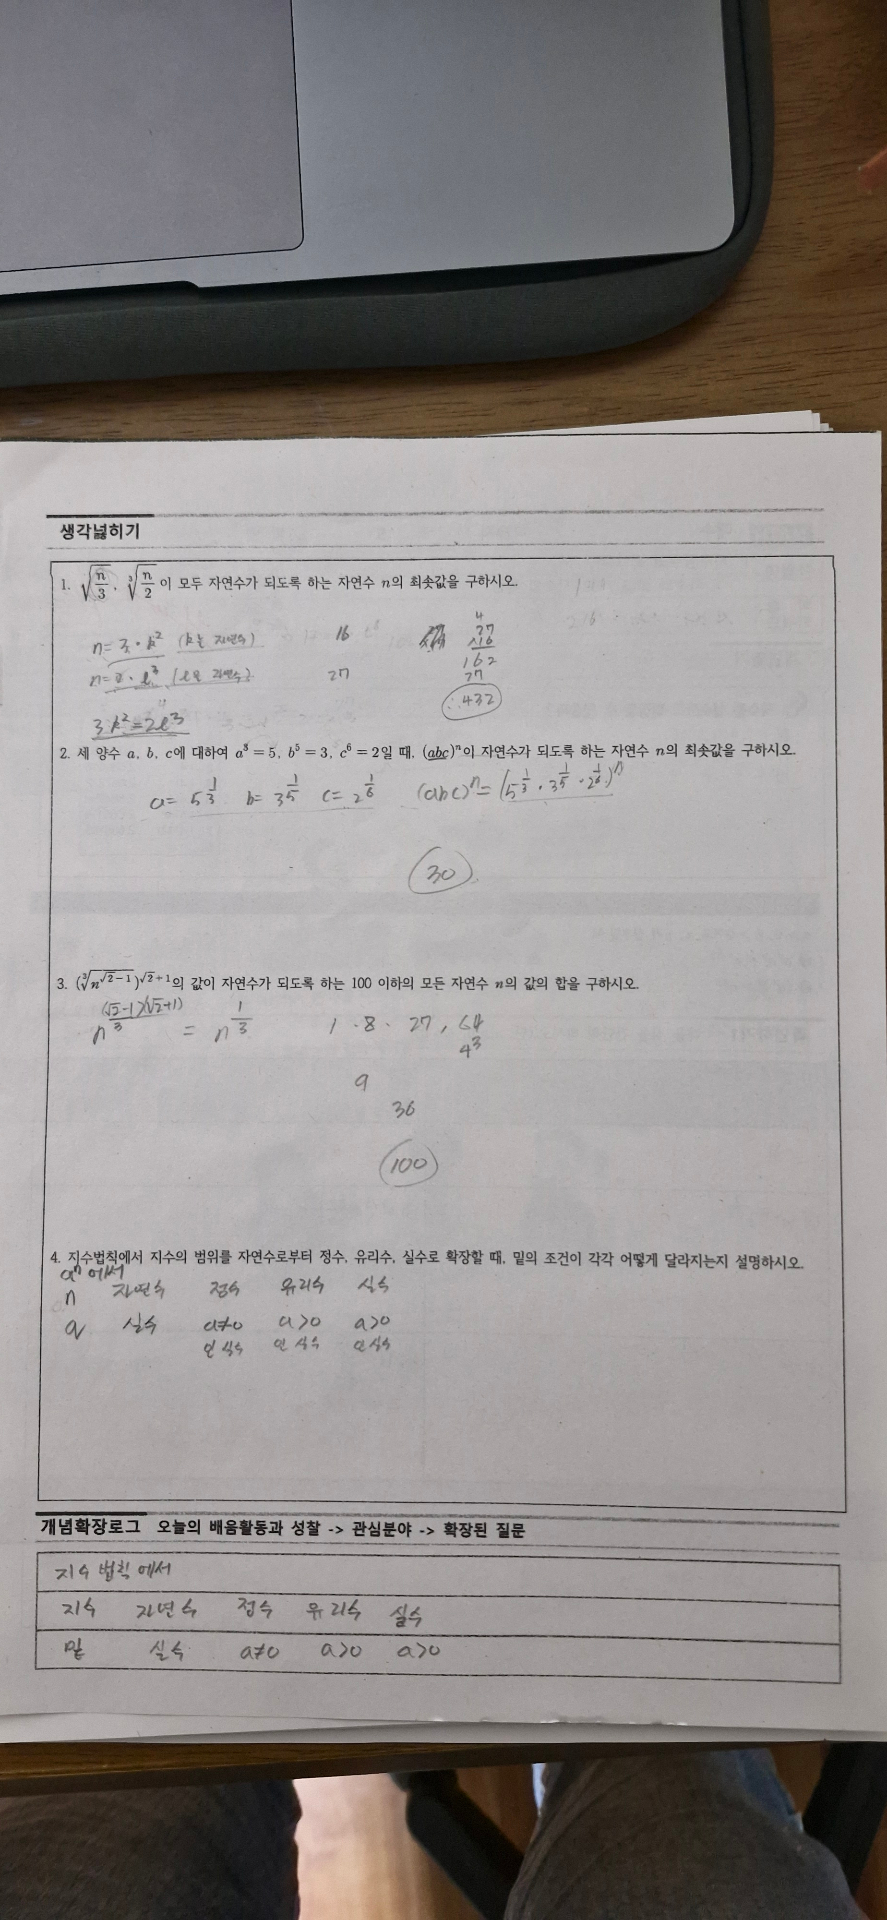 생각넓히기
1. √(n/3), ³√(n/2) 이 모두 자연수가 되도록 하는 자연수 n의 최솟값을 구하시오.
n=3·k² (k는 자연수) 16
n=2·l³ (l은 자연수) 27
4
27
×16
162
27
∴432
3k²=2l³
2. 세 양수 a, b, c에 대하여 a³=5, b⁵=3, c⁶=2일 때, (abc)ⁿ이 자연수가 되도록 하는 자연수 n의 최솟값을 구하시오.
a=5^(1/3) b=3^(1/5) c=2^(1/6) (abc)ⁿ=(5^(1/3)·3^(1/5)·2^(1/6))ⁿ
30
3. (³√(n^(√2-1)))^(√2+1)의 값이 자연수가 되도록 하는 100 이하의 모든 자연수 n의 값의 합을 구하시오.
n^((√2-1)(√2+1)/3) = n^(1/3) 1·8·27, 64
4³
9
36
100
4. 지수법칙에서 지수의 범위를 자연수로부터 정수, 유리수, 실수로 확장할 때, 밑의 조건이 각각 어떻게 달라지는지 설명하시오.
aⁿ에서
n 자연수 정수 유리수 실수
a 실수 a≠0 a>0 a>0
인 실수 인 실수 인 실수
개념확장로그 오늘의 배움활동과 성찰 -> 관심분야 -> 확장된 질문
지수법칙에서
지수 자연수 정수 유리수 실수
밑 실수 a≠0 a>0 a>0